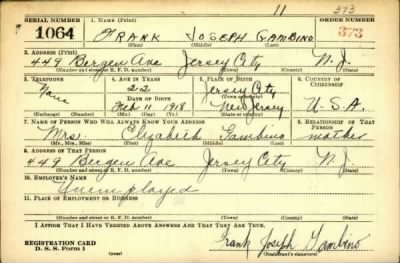 11 373
SERIAL NUMBER 1. NAME (Print) ORDER NUMBER
1064 FRANK JOSEPH GAMBINO 373
(First) (Middle) (Last)
2. ADDRESS (Print)
449 Bergen Ave Jersey City N.J.
(Number and street or R. F. D. number) (Town) (County) (State)
3. TELEPHONE 4. AGE IN YEARS 5. PLACE OF BIRTH 6. COUNTRY OF CITIZENSHIP
None 22 Jersey City
DATE OF BIRTH (Town or county)
Feb 11 1918 New Jersey U.S.A.
(Exchange) (Number) (Mo.) (Day) (Yr.) (State or country)
7. NAME OF PERSON WHO WILL ALWAYS KNOW YOUR ADDRESS 8. RELATIONSHIP OF THAT PERSON
Mrs. Elizabeth Gambino mother
(Mr., Mrs., Miss) (First) (Middle) (Last)
9. ADDRESS OF THAT PERSON
449 Bergen Ave Jersey City N.J.
(Number and street or R. F. D. number) (Town) (County) (State)
10. EMPLOYER'S NAME
Unemployed
11. PLACE OF EMPLOYMENT OR BUSINESS
(Number and street or R. F. D. number) (Town) (County) (State)
I AFFIRM THAT I HAVE VERIFIED ABOVE ANSWERS AND THAT THEY ARE TRUE.
REGISTRATION CARD
D. S. S. Form 1 Frank Joseph Gambino
(Registrant's signature)